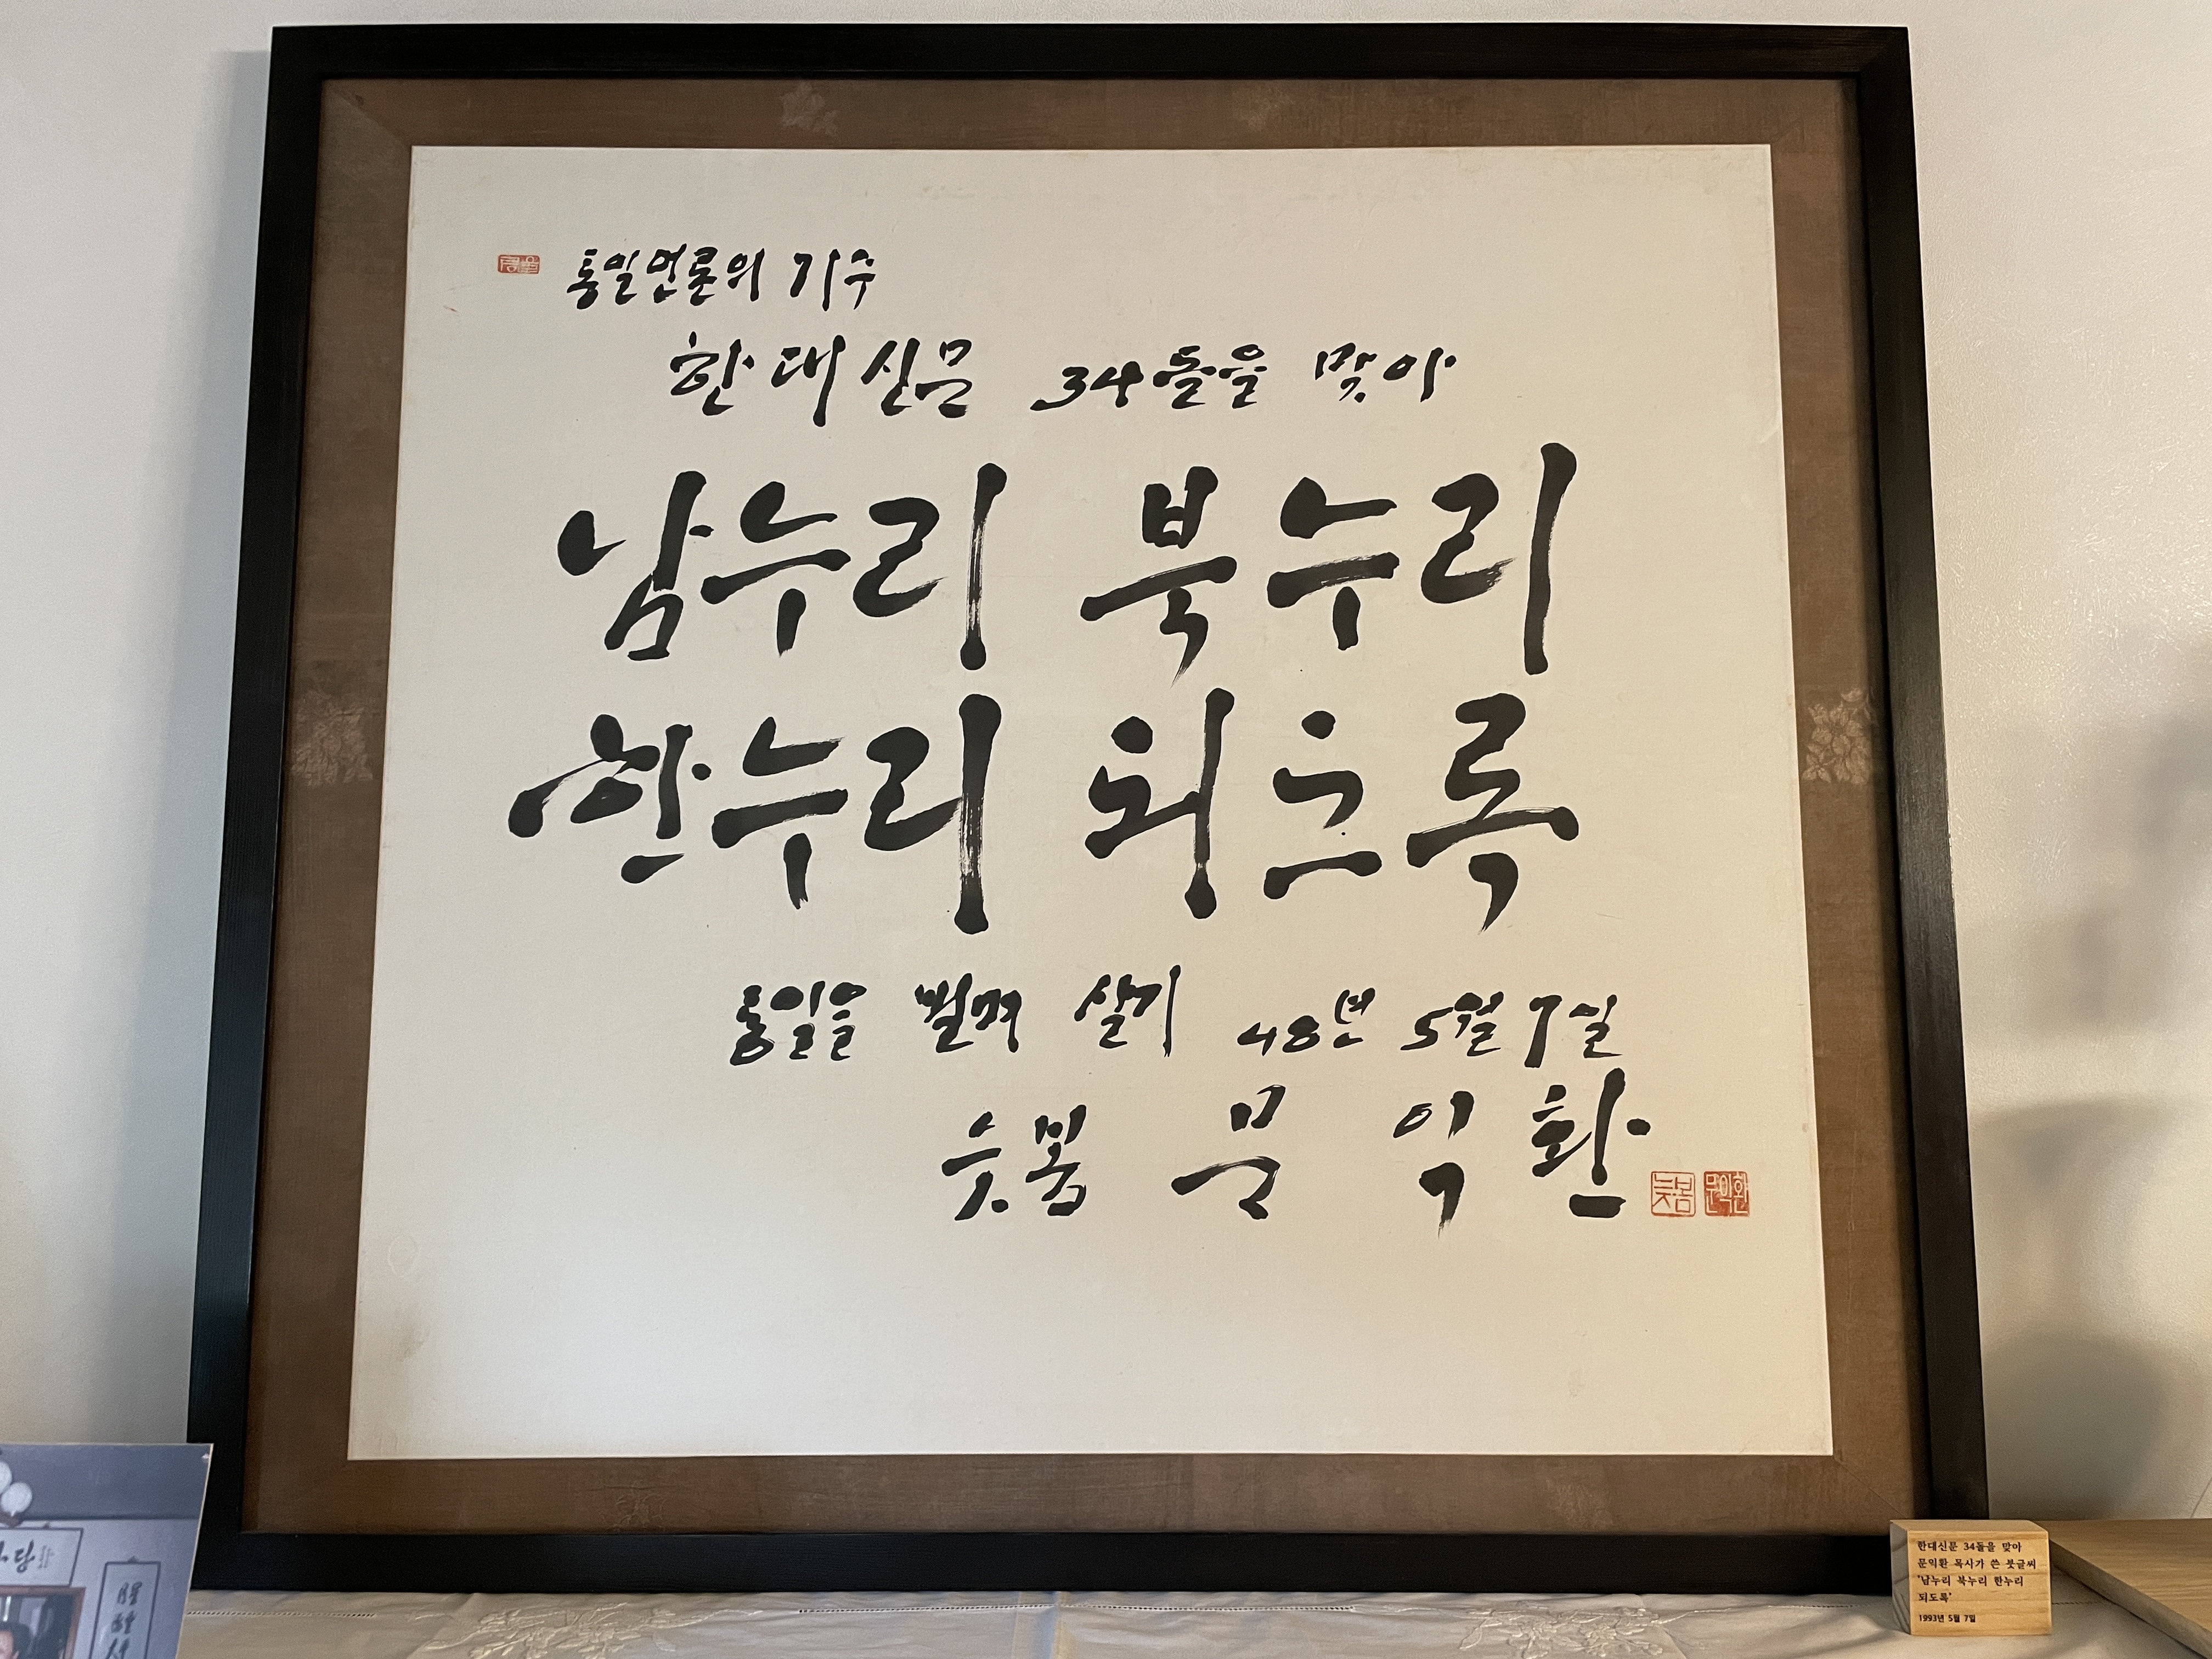 통일언론의 기수
한대신문 34돌을 맞아
남누리 북누리
한누리 되도록
통일을 빌며 살기 48년 5월 7일
늦봄 문 익 환
늦봄 문익환
한대신문 34돌을 맞아
문익환 목사가 쓴 붓글씨
'남누리 북누리 한누리
되도록'
1993년 5월 7일